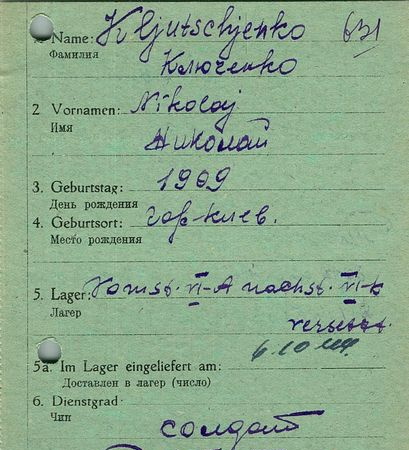 1. Name: Kljutschjenko 631
Фамилия Ключенко
2. Vornamen: Nikolaj
Имя Николай
3. Geburtstag: 1909
День рождения
4. Geburtsort: гор-Киев.
Место рождения
5. Lager: VI-A nach st. VI-
Лагер versetzt.
6.10.44.
5a. Im Lager eingeliefert am:
Доставлен в лагер (число)
6. Dienstgrad:
Чин солдат